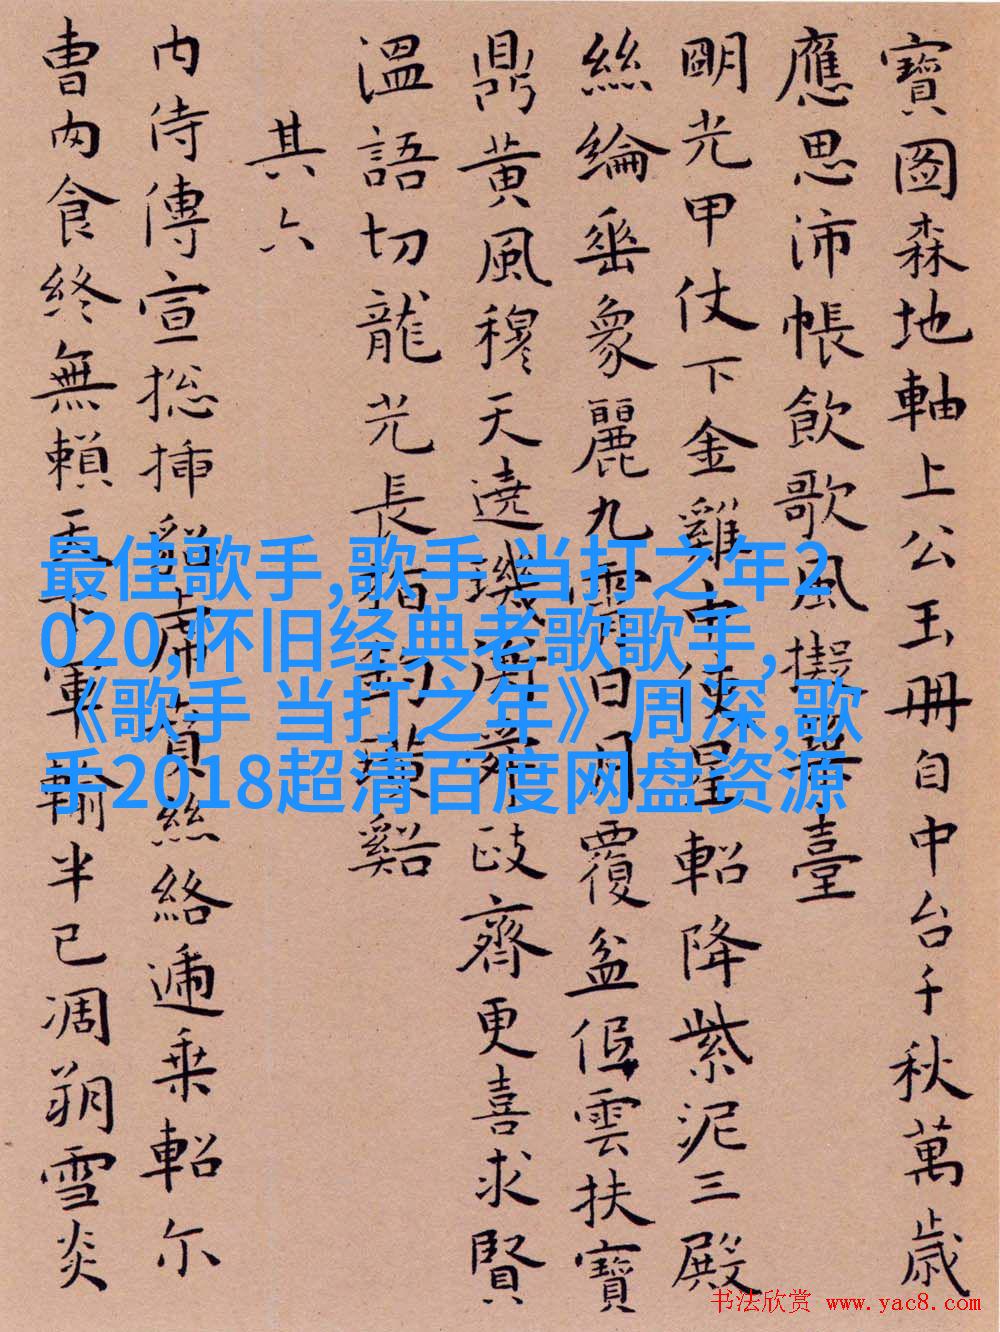 寶圖森地軸上公玉冊自中台千秋萬歲
應思沛帳飲歌風擬築臺
朙光甲仗下金雞中使星軺降紫泥三殿
絲綸垂象麗九霄日月覆盆雲扶寶
鼎黃風穆天遶璣衡舜歧齊更喜求賢
溫語切龍光長指釣璜谿
其六
內侍傳宣捴插貂虎賁絲絡逓乘軺尔
曹肉食終無賴天下軍輸半已凋朔雪炎
最佳歌手,歌手 当打之年2
020,怀旧经典老歌歌手,
《歌手 当打之年》周深,歌
手2018超清百度网盘资源
书法欣赏 www.yac8.com